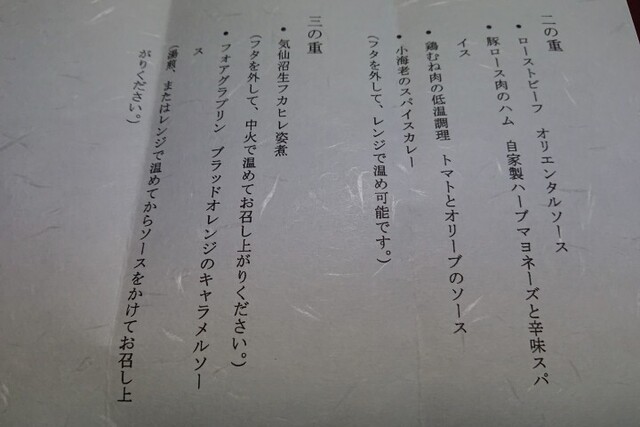 二の重
• ローストビーフ　オリエンタルソース
• 豚ロース肉のハム　自家製ハーブマヨネーズと辛味スパ
イス
• 鶏むね肉の低温調理　トマトとオリーブのソース
• 小海老のスパイスカレー
（フタを外して、レンジで温め可能です。）
三の重
• 気仙沼生フカヒレ姿煮
（フタを外して、中火で温めてお召し上がりください。）
• フォアグラプリン　ブラッドオレンジのキャラメルソー
ス
（湯煎、またはレンジで温めてからソースをかけてお召し上
がりください。）